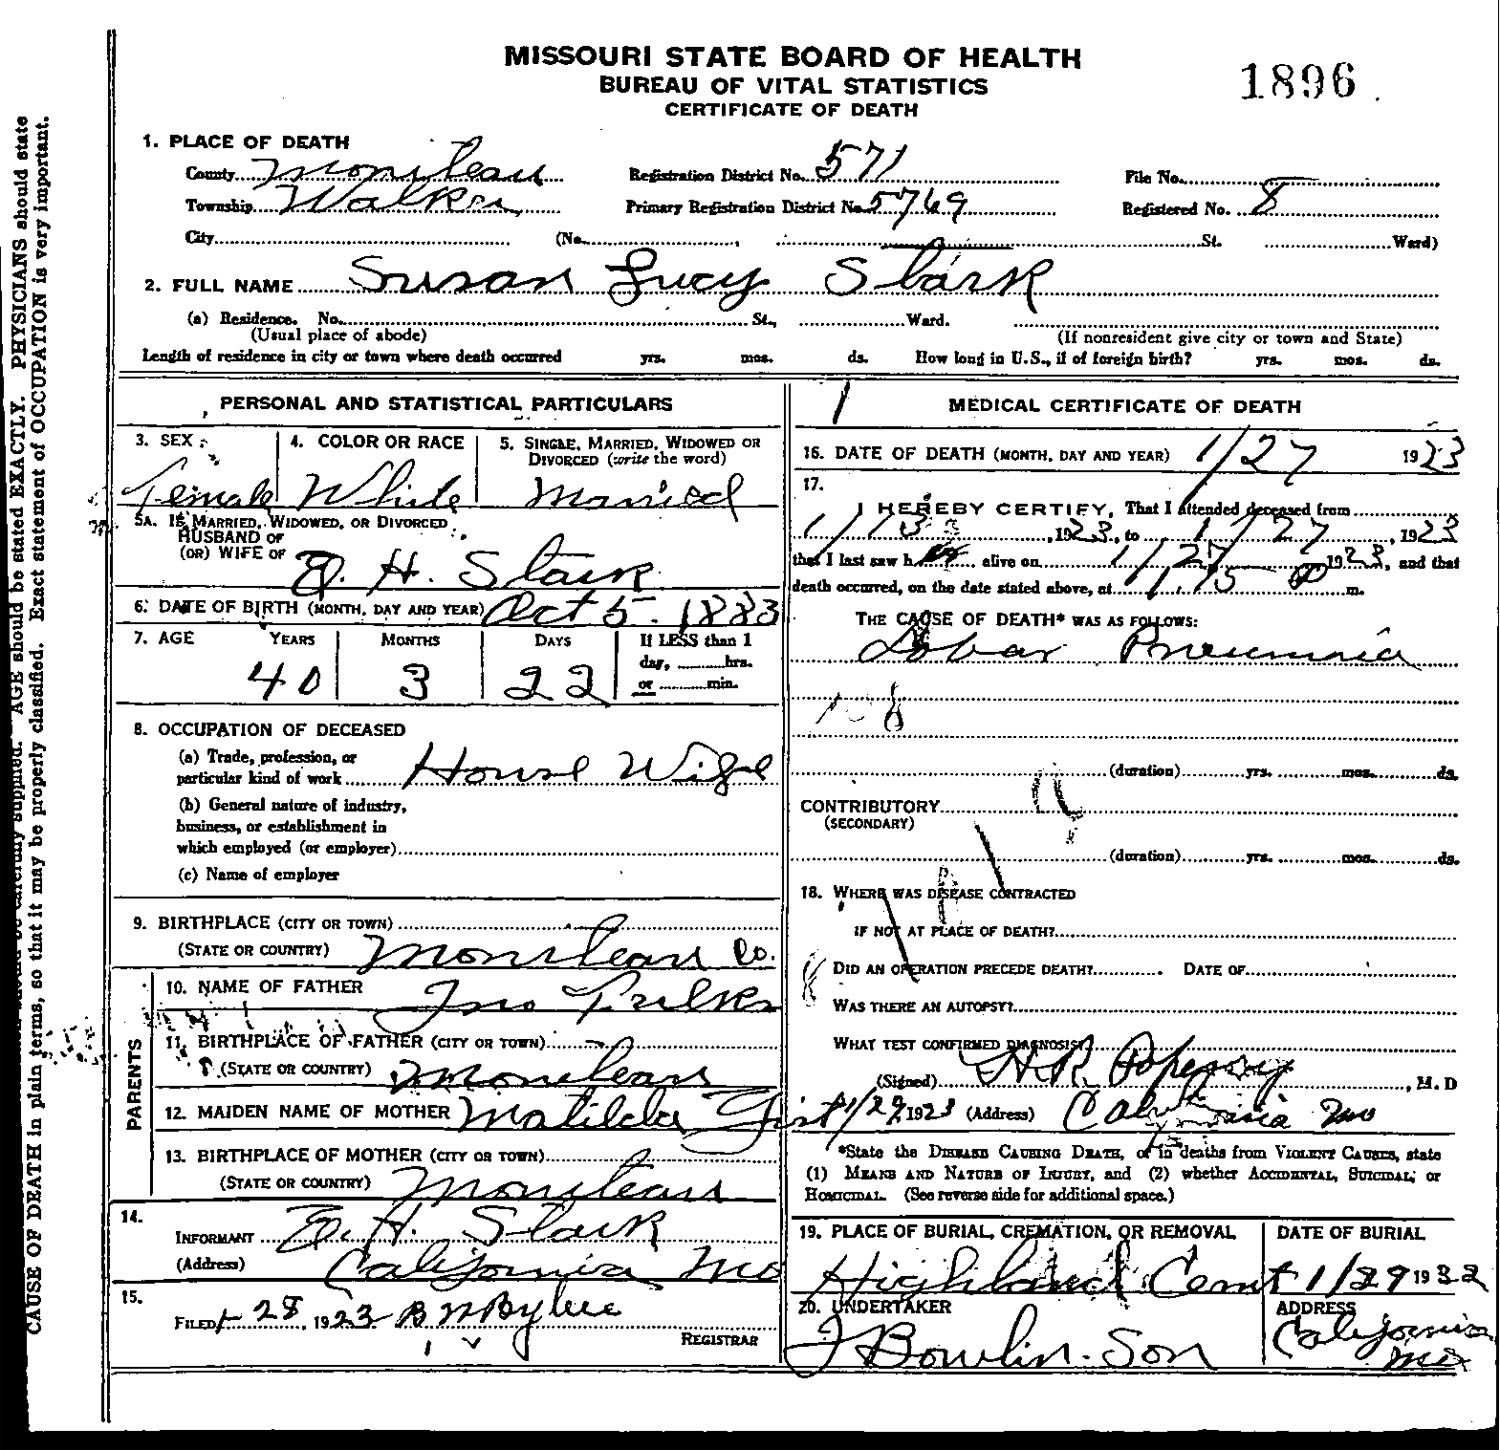 MISSOURI STATE BOARD OF HEALTH
BUREAU OF VITAL STATISTICS
CERTIFICATE OF DEATH
1896
1. PLACE OF DEATH
County Moniteau Registration District No. 571 File No.
Township Walker Primary Registration District No. 5769 Registered No. 8
City (No. , St. Ward)
2. FULL NAME Susan Lucy Stark
(a) Residence. No. St., Ward.
(Usual place of abode) (If nonresident give city or town and State)
Length of residence in city or town where death occurred yrs. mos. ds. How long in U.S., if of foreign birth? yrs. mos. ds.
PERSONAL AND STATISTICAL PARTICULARS
3. SEX 4. COLOR OR RACE 5. SINGLE, MARRIED, WIDOWED OR
DIVORCED (write the word)
Female White Married
5A. IF MARRIED, WIDOWED, OR DIVORCED
HUSBAND OF
(OR) WIFE OF E. H. Stark
6. DATE OF BIRTH (MONTH, DAY AND YEAR) Oct 5 1883
7. AGE YEARS MONTHS DAYS If LESS than 1
day, hrs.
or min.
40 3 22
8. OCCUPATION OF DECEASED
(a) Trade, profession, or
particular kind of work House Wife
(b) General nature of industry,
business, or establishment in
which employed (or employer)
(c) Name of employer
9. BIRTHPLACE (CITY OR TOWN)
(STATE OR COUNTRY) Moniteau Co.
PARENTS
10. NAME OF FATHER Jno
11. BIRTHPLACE OF FATHER (CITY OR TOWN)
(STATE OR COUNTRY) Moniteau
12. MAIDEN NAME OF MOTHER Matilda Gist
13. BIRTHPLACE OF MOTHER (CITY OR TOWN)
(STATE OR COUNTRY) Moniteau
14.
INFORMANT E. H. Stark
(Address) California Mo
15.
FILED 1-28, 1923
REGISTRAR
MEDICAL CERTIFICATE OF DEATH
16. DATE OF DEATH (MONTH, DAY AND YEAR) 1/27 1923
17.
I HEREBY CERTIFY, That I attended deceased from
1/ 1923, to 1/27, 1923
that I last saw her alive on 1/27 1923, and that
death occurred, on the date stated above, at 1:15 m.
THE CAUSE OF DEATH* WAS AS FOLLOWS:
Lobar Pneumnia
108
(duration) yrs. mos. ds.
CONTRIBUTORY
(SECONDARY)
(duration) yrs. mos. ds.
18. WHERE WAS DISEASE CONTRACTED
IF NOT AT PLACE OF DEATH?
DID AN OPERATION PRECEDE DEATH? DATE OF
WAS THERE AN AUTOPSY?
WHAT TEST CONFIRMED DIAGNOSIS?
(Signed) H R Popejoy, M. D
1/29 1923 (Address) California Mo
*State the DISEASE CAUSING DEATH, or in deaths from VIOLENT CAUSES, state
(1) MEANS AND NATURE OF INJURY, and (2) whether ACCIDENTAL, SUICIDAL, or
HOMICIDAL. (See reverse side for additional space.)
19. PLACE OF BURIAL, CREMATION, OR REMOVAL DATE OF BURIAL
Highland Cemt 1/29 1932
20. UNDERTAKER ADDRESS
J Bowlin-Son California
Mo
AGE should be stated EXACTLY. PHYSICIANS should state
CAUSE OF DEATH in plain terms, so that it may be properly classified. Exact statement of OCCUPATION is very important.